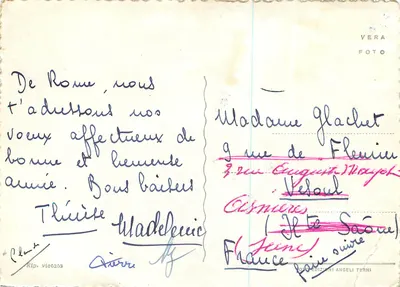 VERA
FOTO
De Rome, nous
t'adressons nos
voeux affectueux de
bonne et heureuse
année. Bons baisers
Thérèse
Madeleine
Pierre
Madame Glachet
9 rue de Fleurier
3 rue Auguste
Vesoul
Asnières
(Hte Saône)
(Seine)
France
faire suivre